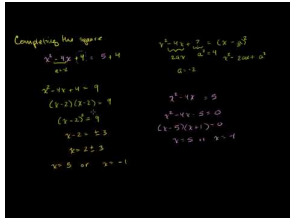 Completing the square
x² - 4x + 4 = 5 + 4
x² - 4x + 4 = 9
(x-2)(x-2) = 9
(x-2)² = 9
x-2 = ± 3
x = 2 ± 3
x = 5 or x = -1
x² - 4x + ? = (x - a)²
2ax a² = 4 x² - 2ax + a²
a = -2
x² - 4x = 5
x² - 4x - 5 = 0
(x-5)(x+1) = 0
x = 5 or x = -1